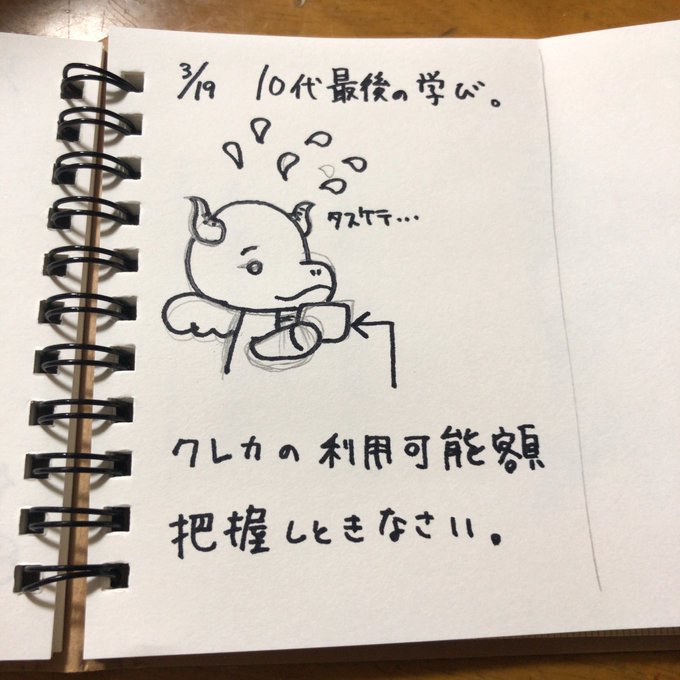 3/19 10代最後の学び。
タスケテ…
クレカの利用可能額
把握しときなさい。